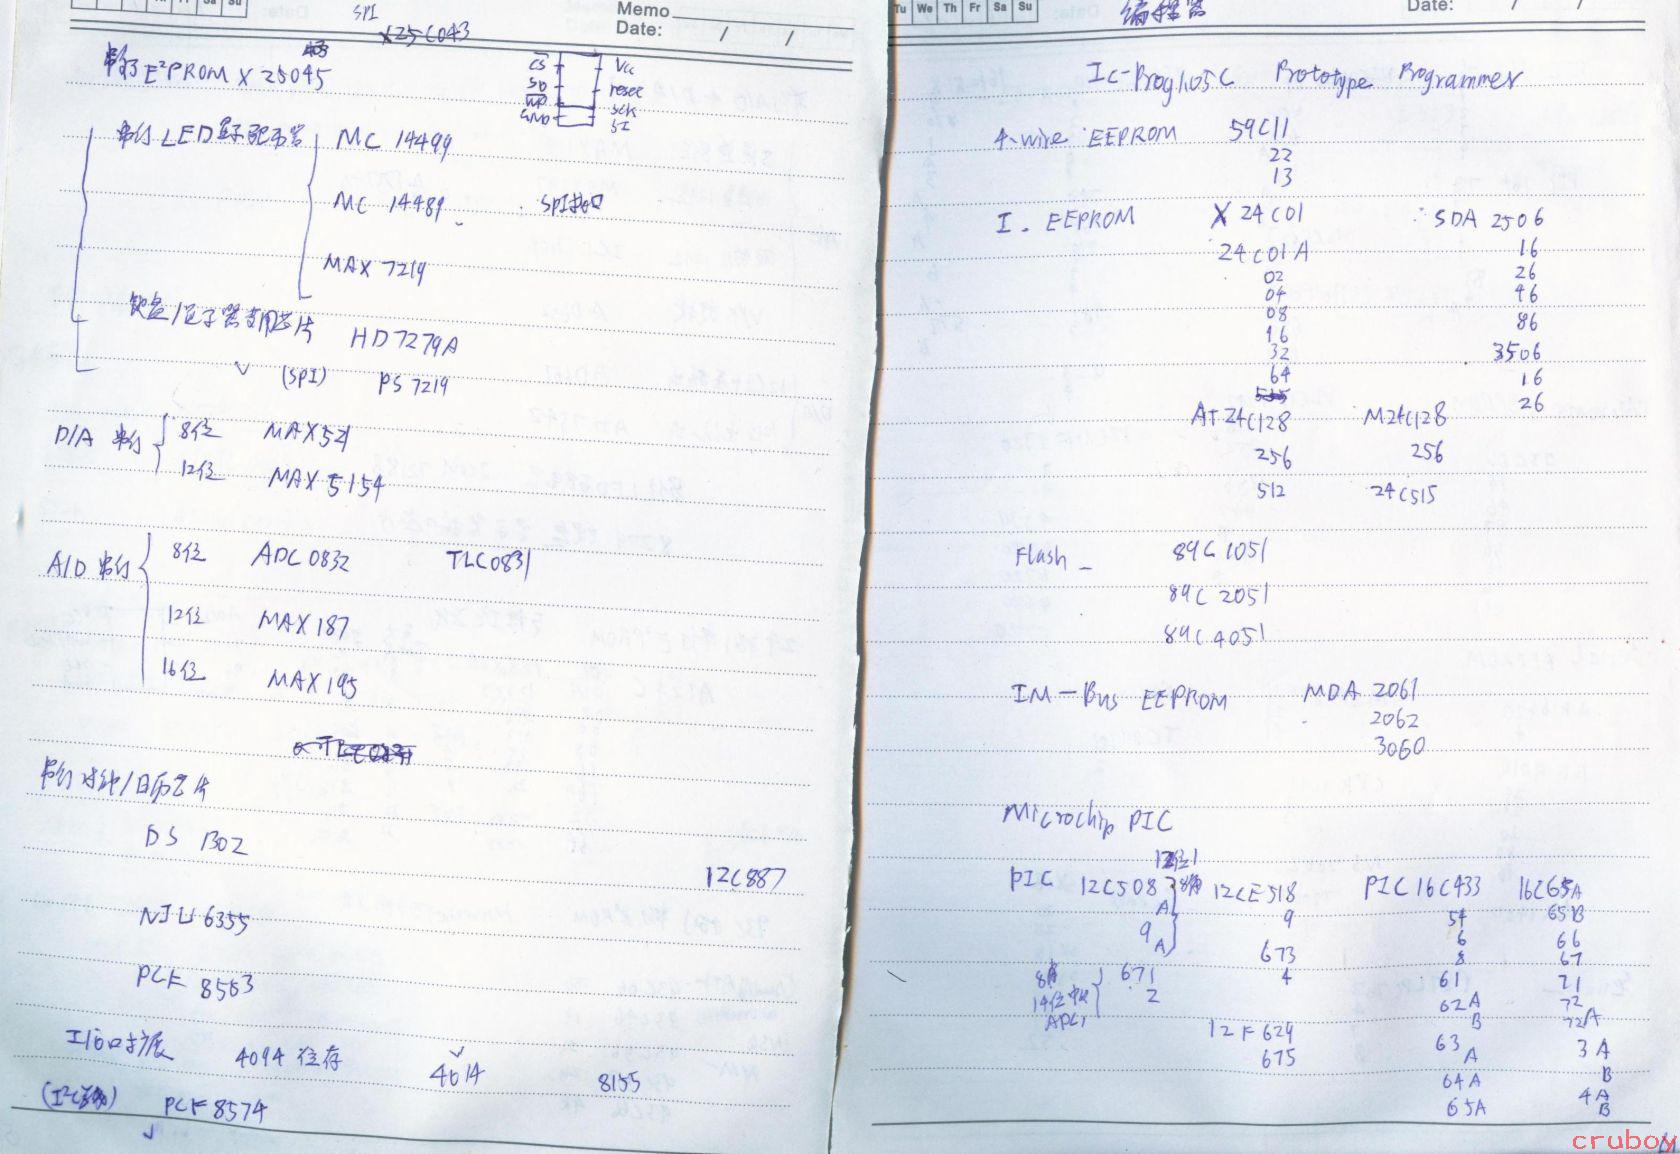 SPI
X25C043
Memo
Date: / /
串行E²PROM X 25045
CS
SO
WP
GND
Vcc
reset
SCK
SI
串行LED显示驱动器
MC 14499
MC 14489
SPI接口
MAX 7219
键盘/显示器专用芯片
HD7279A
(SPI) PS 7219
D/A 串行
8位 MAX521
12位 MAX5154
A/D 串行
8位 ADC0832 TLC0831
12位 MAX187
16位 MAX195
串行时钟/日历芯片
DS 1302
12C887
NJU6355
PCF 8563
I/O口扩展 4094 4014 8155
PCF8574
Tu We Th Fr Sa Su
编程器
Date: / /
Ic-Prog1.05C Prototype Programmer
4-wire EEPROM 59C11
22
13
I. EEPROM X 24C01 SDA 2506
24C01A 16
02 26
04 46
08 86
16 3506
32 16
64 26
AT24C128 M24C128
256 256
512 24C515
Flash 89C1051
89C2051
89C4051
IM-Bus EEPROM MDA 2061
2062
3060
Microchip PIC
PIC 12C508 12CE518 PIC16C433 16C65A
A 9 54 65B
9A 673 6 66
8 67
671 4 61 71
2 62A 72
B 72A
12F629 63A 3A
675 B
64A 4A
65A B
cruboy